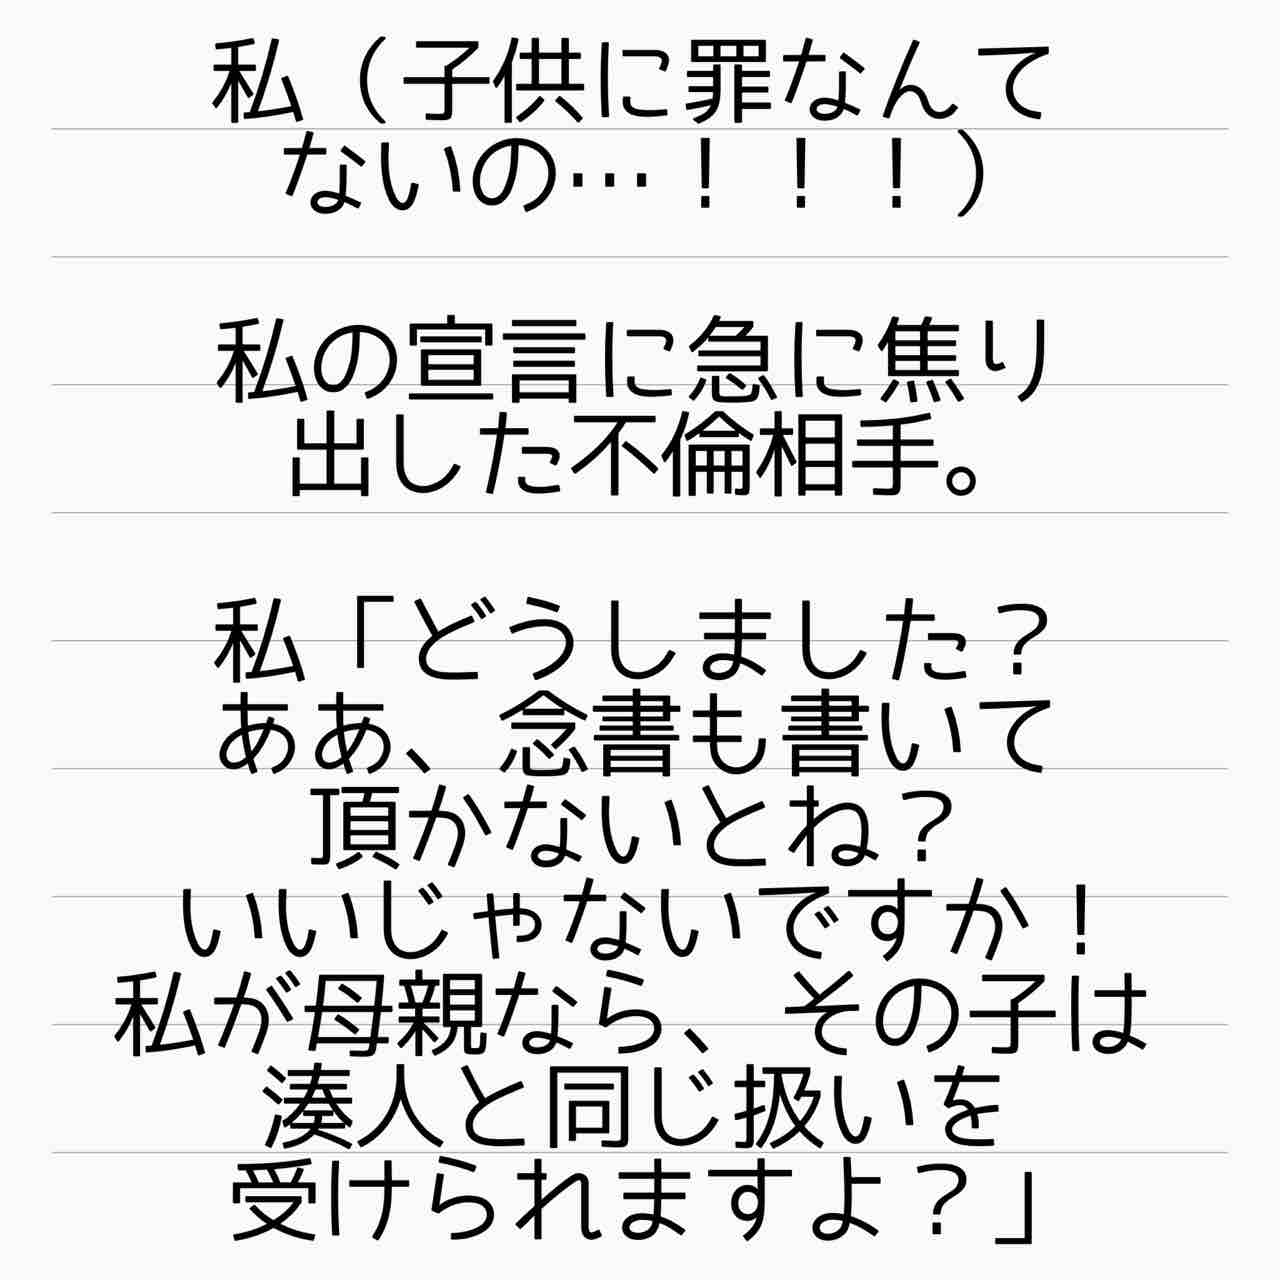 私（子供に罪なんて
ないの…！！！）
私の宣言に急に焦り
出した不倫相手。
私「どうしました？
ああ、念書も書いて
頂かないとね？
いいじゃないですか！
私が母親なら、その子は
湊人と同じ扱いを
受けられますよ？」